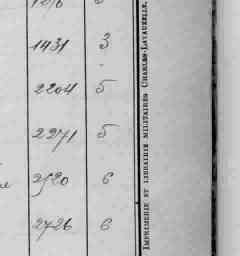 1431 3
2204 5
2271 5
2520 6
2726 6
IMPRIMERIE ET LIBRAIRIE MILITAIRES CHARLES-LAVAUZELLE.